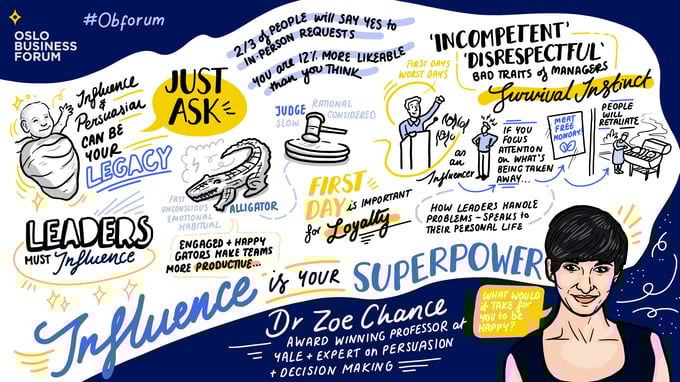 OSLO
BUSINESS
FORUM
#Obforum
2/3 of PEOPLE will SAY YES to
IN-PERSON REQUESTS
YOU ARE 12% MORE LIKEABLE
than you THINK
Influence
& Persuasion
CAN BE
YOUR
LEGACY
JUST
ASK
JUDGE
SLOW
RATIONAL
CONSIDERED
FAST
UNCONSCIOUS
EMOTIONAL
HABITUAL
ALLIGATOR
ENGAGED + HAPPY
GATORS MAKE TEAMS
MORE PRODUCTIVE...
LEADERS
MUST Influence
FIRST
DAY is IMPORTANT
for Loyalty
FIRST DAYS
WORST DAYS
'INCOMPETENT'
'DISRESPECTFUL'
BAD TRAITS of MANAGERS
Survival Instinct
as
an
Influencer
IF YOU
FOCUS
ATTENTION
ON WHAT'S
BEING TAKEN
AWAY...
MEAT
FREE
MONDAY
PEOPLE
WILL
RETALIATE
HOW LEADERS HANDLE
PROBLEMS - SPEAKS to
THEIR PERSONAL LIFE
Influence is YOUR SUPERPOWER
Dr Zoe Chance
AWARD WINNING PROFESSOR at
YALE + EXPERT on PERSUASION
+ DECISION MAKING
WHAT WOULD
it TAKE for
YOU to be
HAPPY?